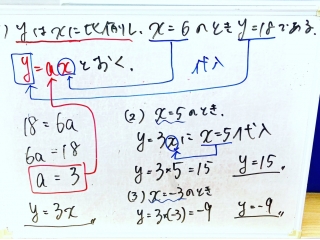 ) yはxに比例し、x=6のときy=18である。
y=axとおく。 代入
18=6a
6a=18
a=3
y=3x
(2) x=5のとき、
y=3xにx=5代入
y=3×5=15 y=15
(3) x=-3のとき
y=3×(-3)=-9 y=-9